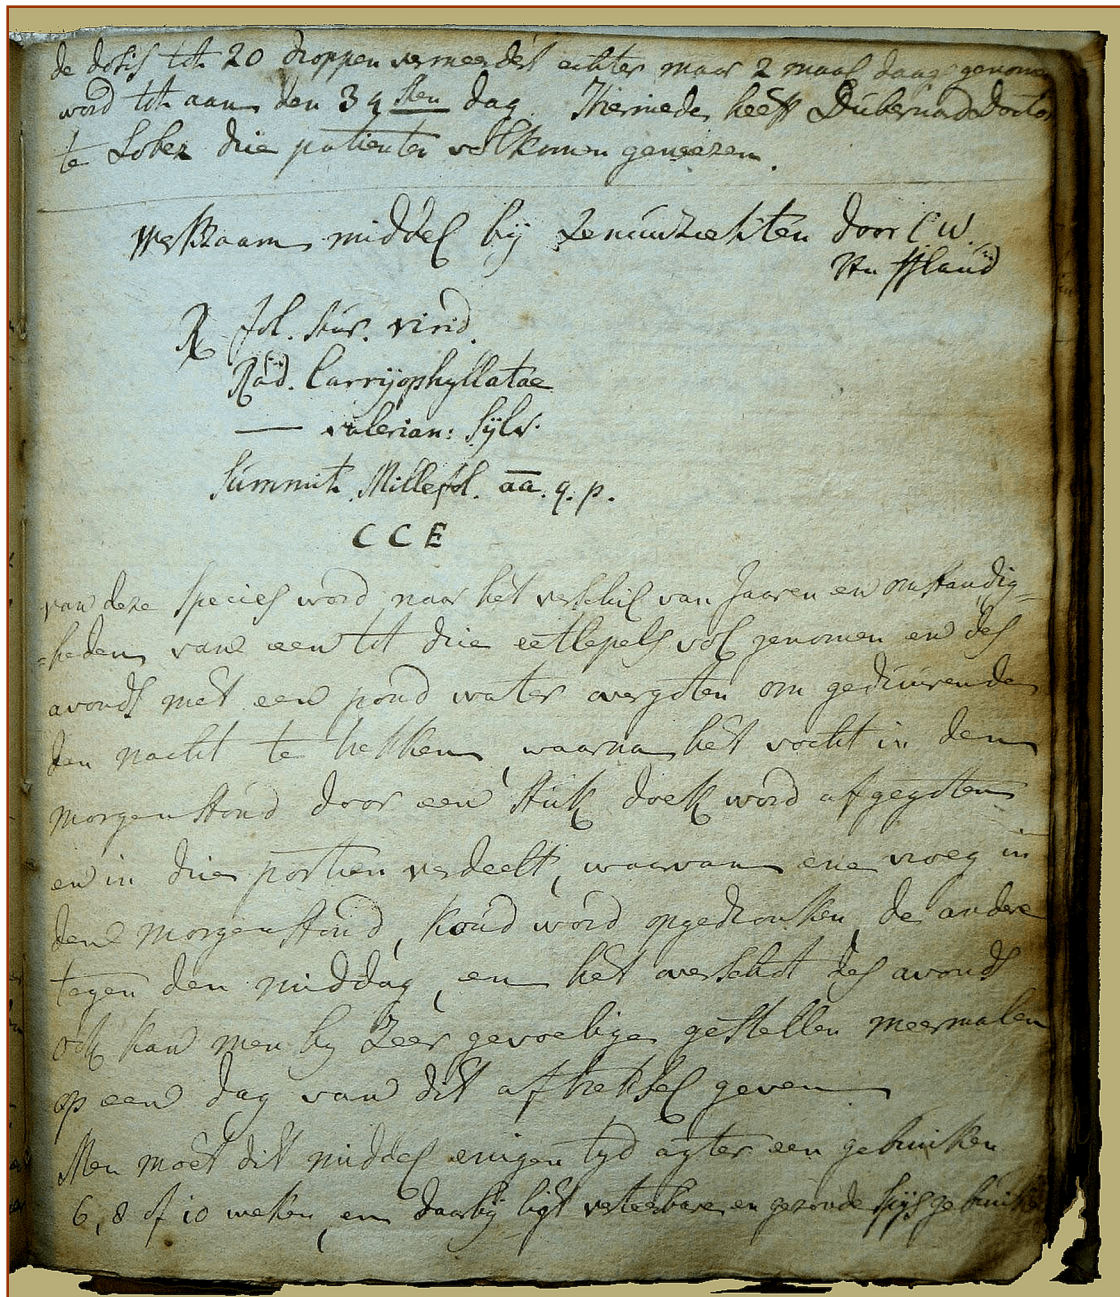 de dosis tot 20 droppen vermeerdert echter maar 2 maal daags genomen
word tot aan den 34 sten dag Hiermede heeft Dubernard Doctor
te Sobez drie patienten volkomen geneezen.
Werkzaam middel bij Zenuwziekten door C W.
Huffland
R fol. Aur. virid.
Rad. Carrijophyllatae
— valerian: Sylv.
Summit. Millefol. aa. q. p.
C C E
van deze Species word naar het verschil van Jaaren en omstandig-
=heden van een tot drie eetlepels vol genomen en des
avonds met een pond water overgoten om geduurende
den nacht te trekken, waarna het vocht in den
morgenstond door een stuk doek word afgegoten
en in drie portien verdeelt, waarvan ene vroeg in
den morgenstond, koud word opgedronken, de andere
tegen den middag, en het overschot des avonds
ook kan men by zeer gevoelige gestellen meermalen
op een dag van dit aftreksel geven
Men moet dit middel enigen tyd agter een gebruiken
6, 8 of 10 weken, en daarbij ligt verteerbare en gezonde spijs gebruiken